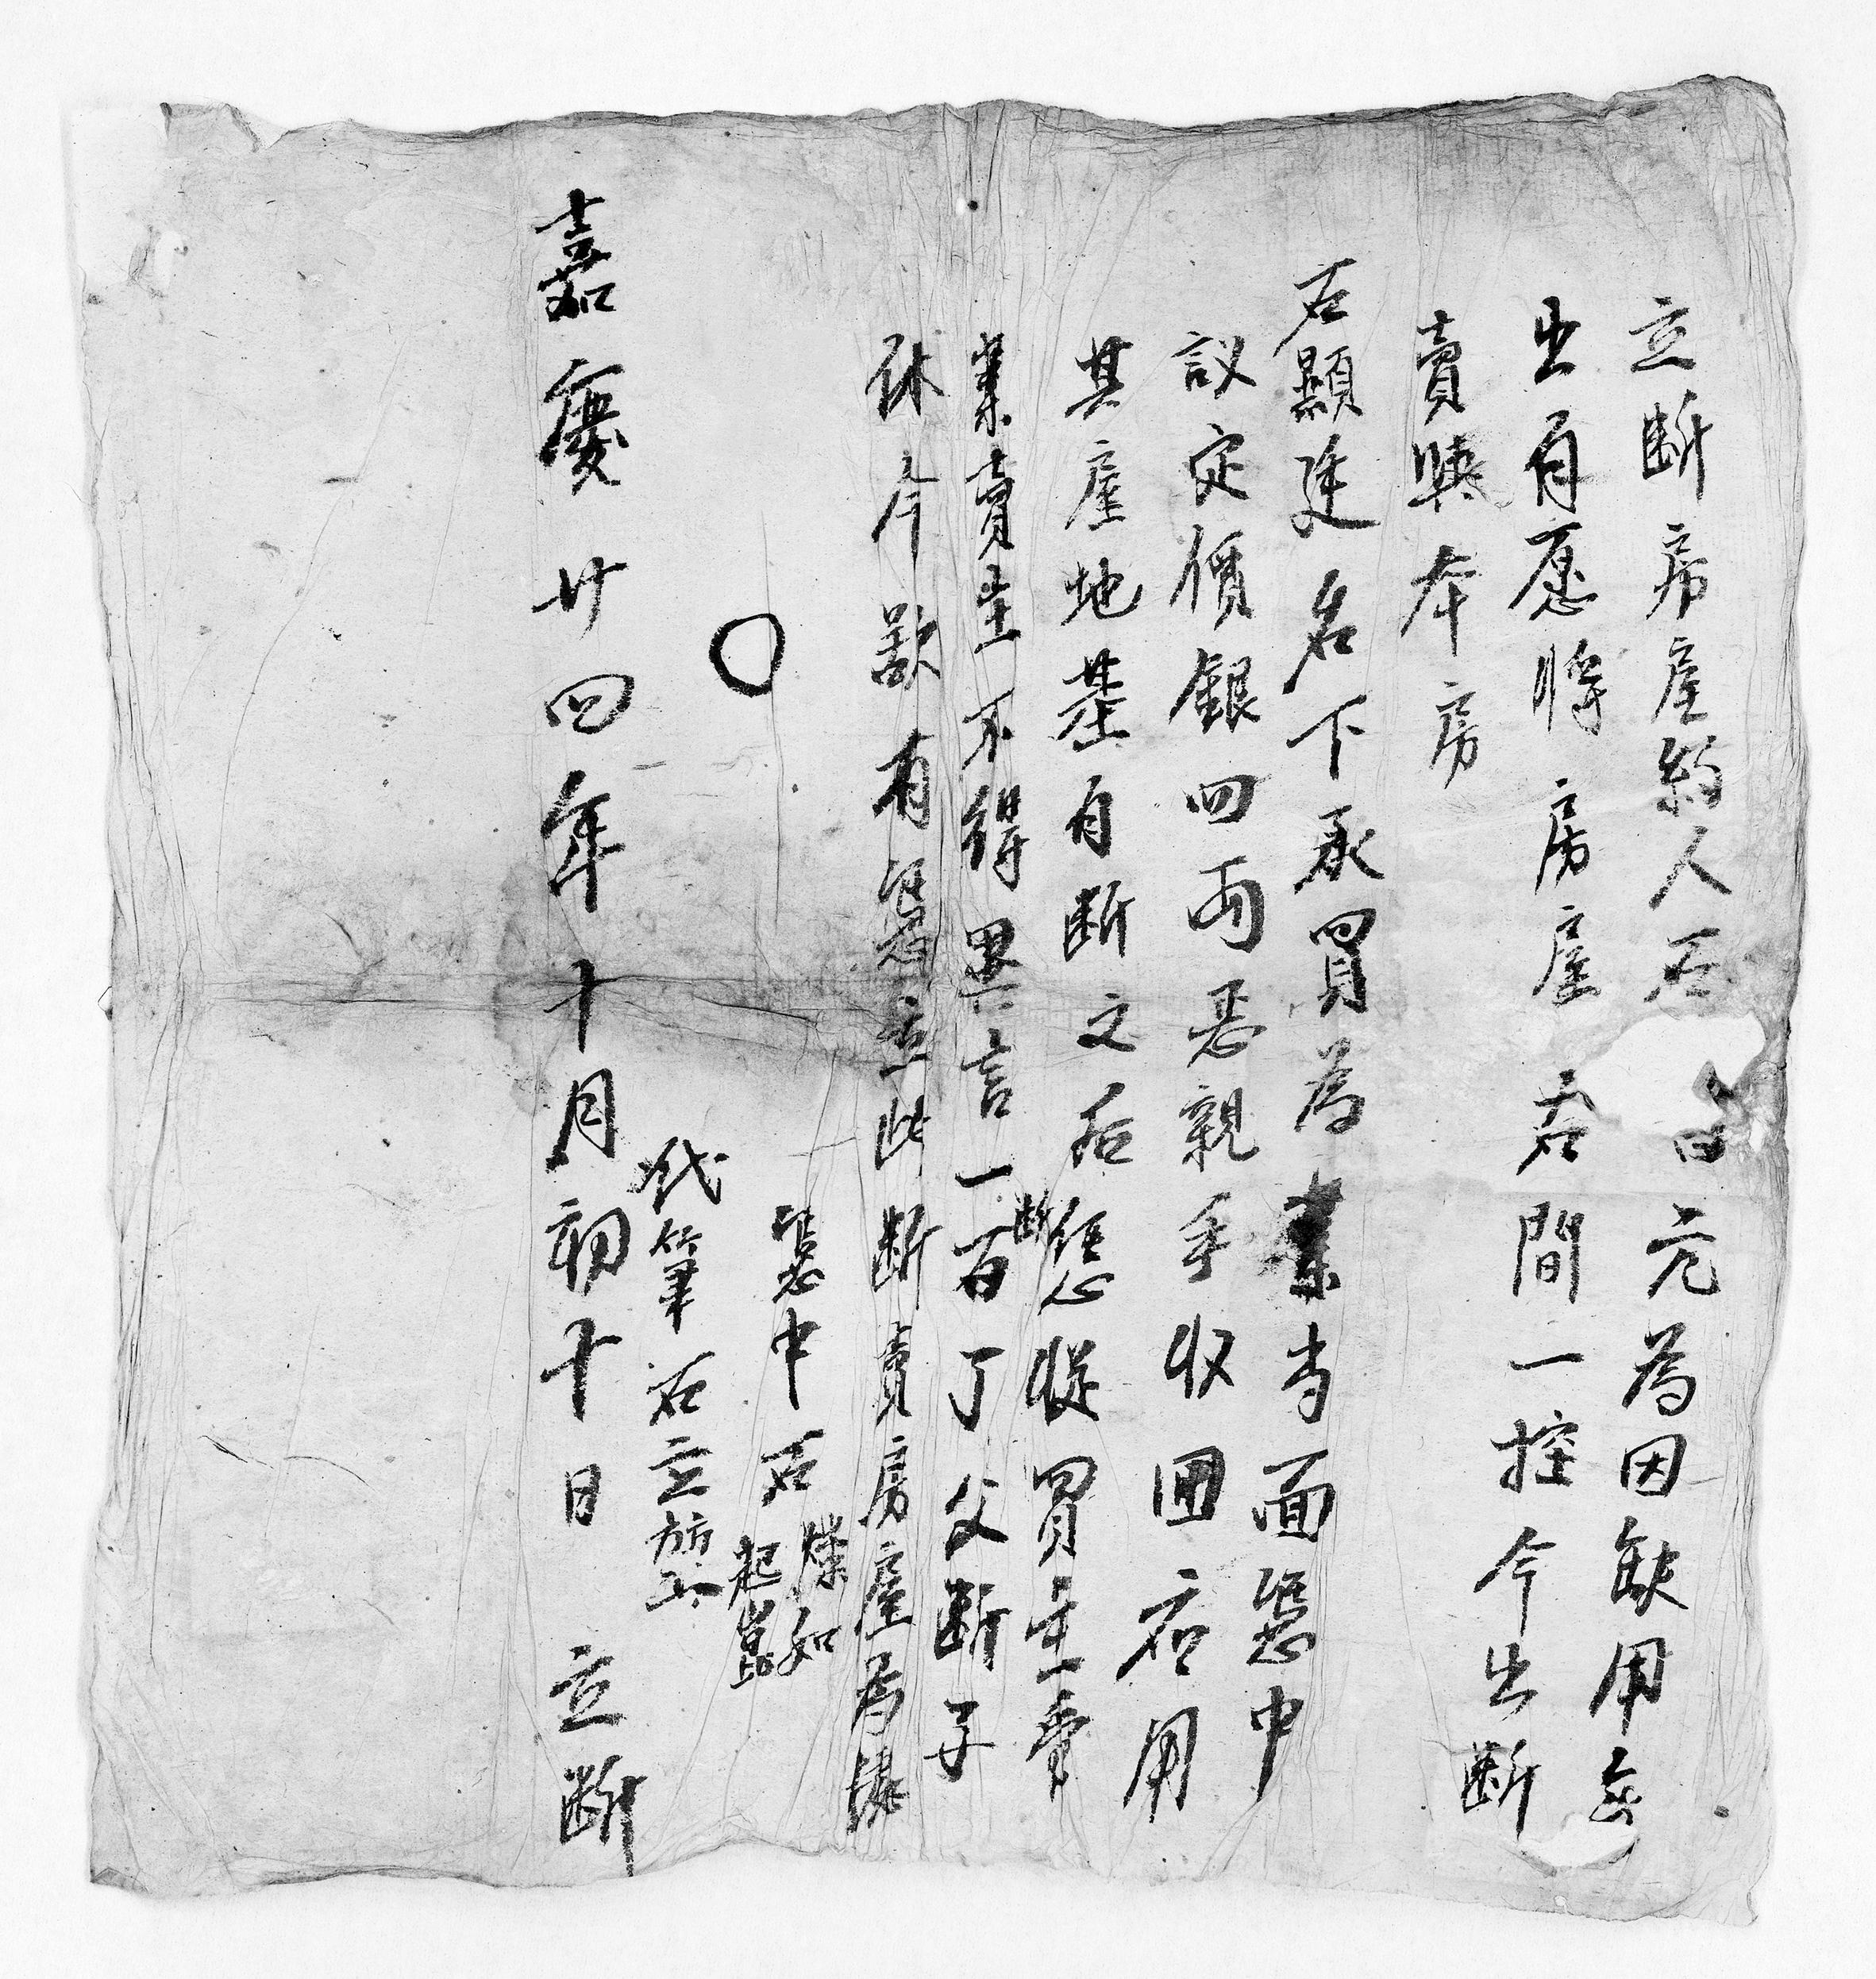 立断房屋約人石 元為因缺用無
出自愿将房屋右間一控今出断
賣與本房
石顯廷名下承買為業当面憑中
議定價銀四両憑親手收囬應用
其屋地基自断之后憑從買主管
断
業賣主不得異言一百了父断子
休今欲有憑立此断賣房屋為據
憑中石
燦如
起
代筆石立
嘉慶廿四年十月初十日立断